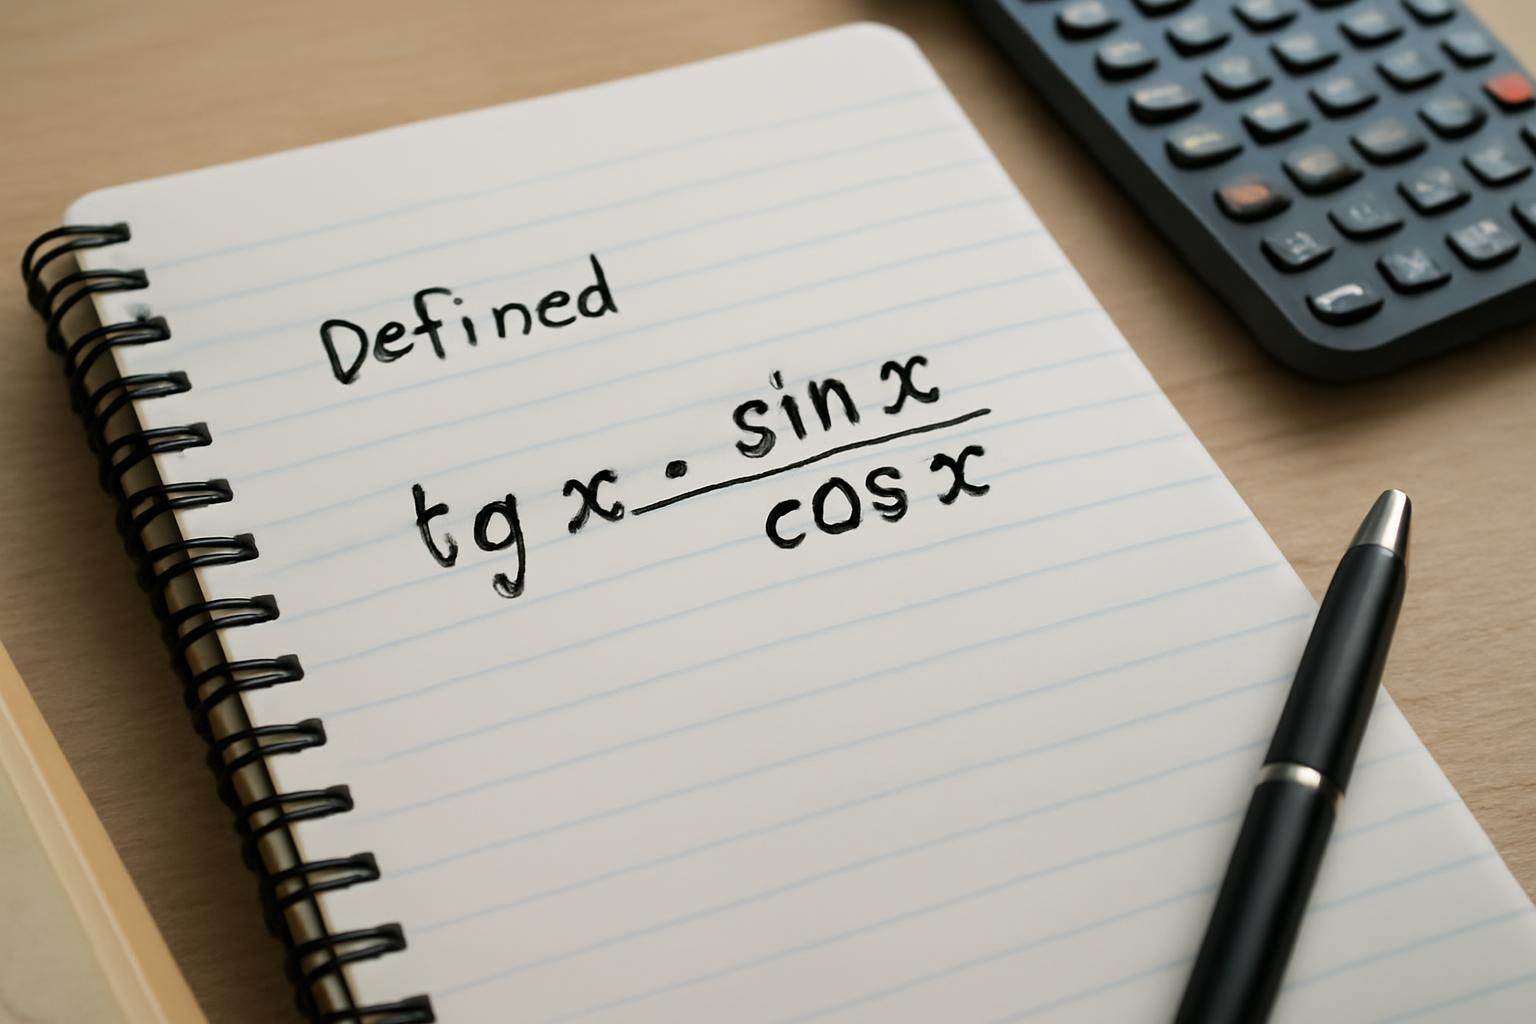 Defined
tg x · sin x
cos x